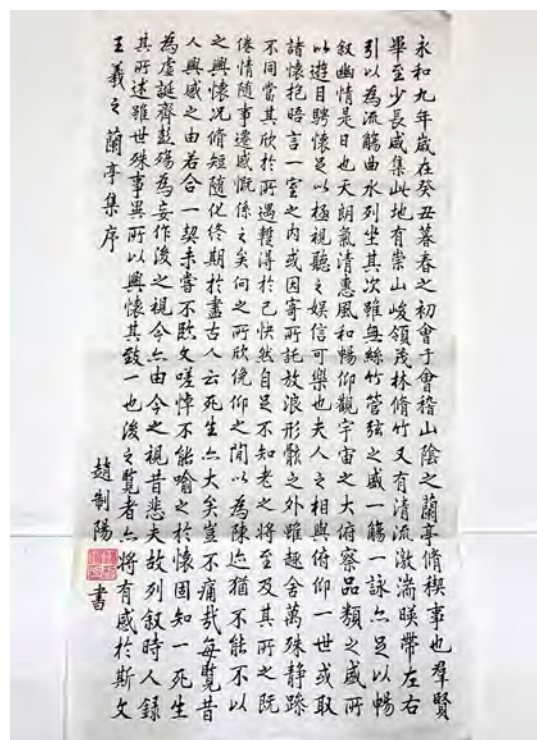 永和九年歲在癸丑暮春之初會于會稽山陰之蘭亭脩稧事也羣賢
畢至少長咸集此地有崇山峻領茂林脩竹又有清流激湍暎帶左右
引以為流觴曲水列坐其次雖無絲竹管弦之盛一觴一詠亦足以暢
叙幽情是日也天朗氣清惠風和暢仰觀宇宙之大俯察品類之盛所
以遊目騁懷足以極視聽之娛信可樂也夫人之相與俯仰一世或取
諸懷抱晤言一室之內或因寄所託放浪形骸之外雖趣舍萬殊靜躁
不同當其欣於所遇蹔得於己快然自足不知老之將至及其所之既
倦情隨事遷感慨係之矣向之所欣俛仰之閒以為陳迹猶不能不以
之興懷况脩短隨化終期於盡古人云死生亦大矣豈不痛哉每覽昔
人興感之由若合一契未嘗不臨文嗟悼不能喻之於懷固知一死生
為虛誕齊彭殤為妄作後之視今亦由今之視昔悲夫故列叙時人錄
其所述雖世殊事異所以興懷其致一也後之覽者亦將有感於斯文
王羲之蘭亭集序
趙制陽書